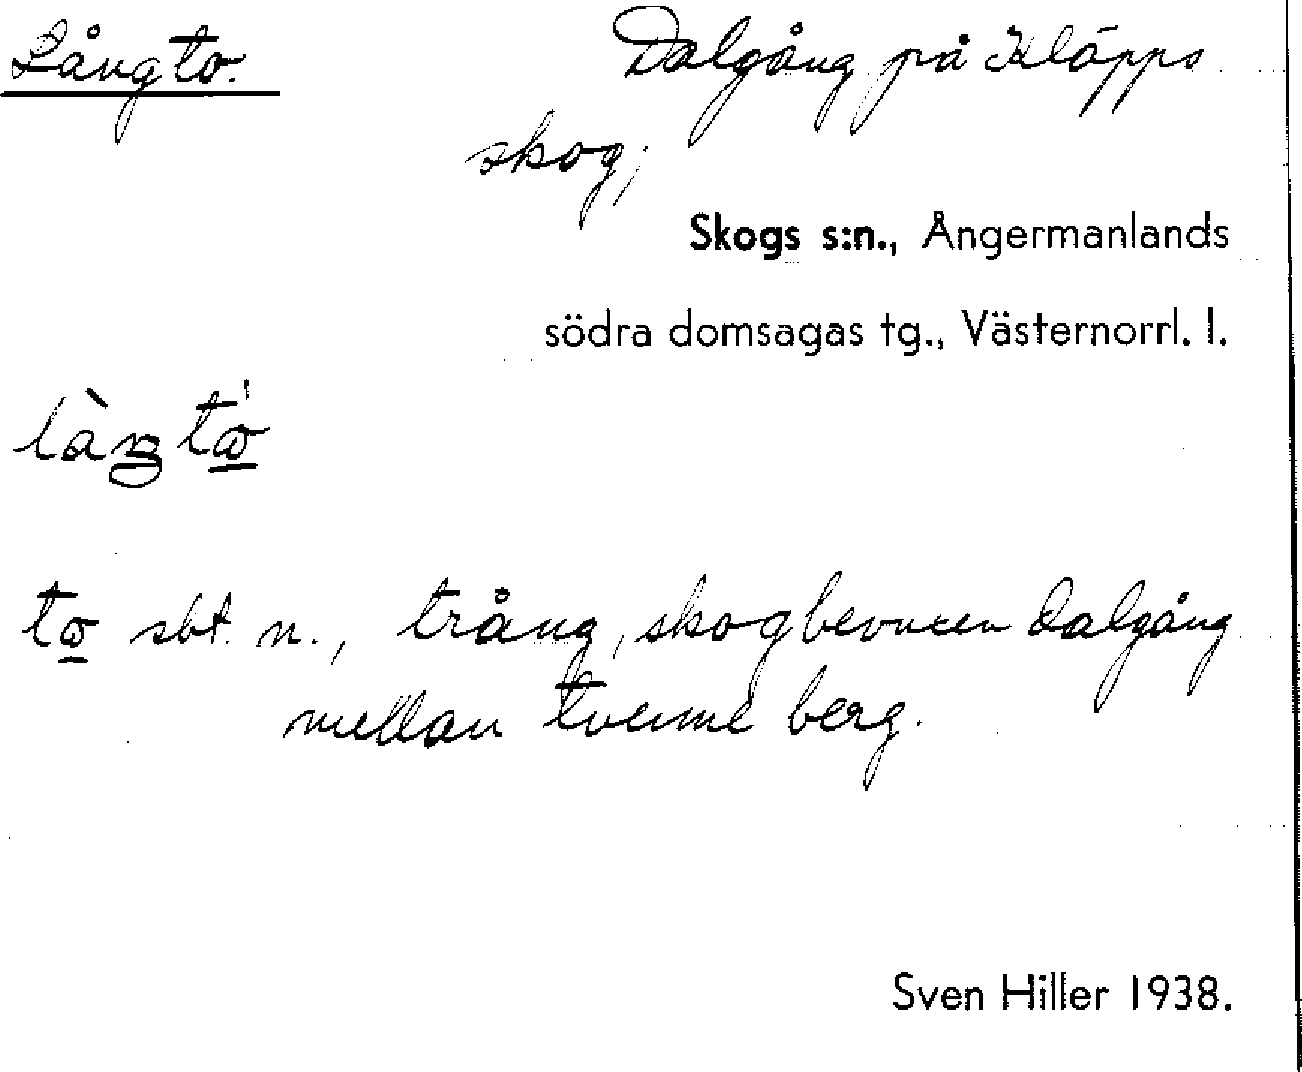 Långto. Dalgång på Kläpps
skog;
Skogs s:n., Ångermanlands
södra domsagas tg., Västernorrl. l.
to sbt. n., trång, skogbevuxen dalgång
mellan tvenne berg.
Sven Hiller 1938.